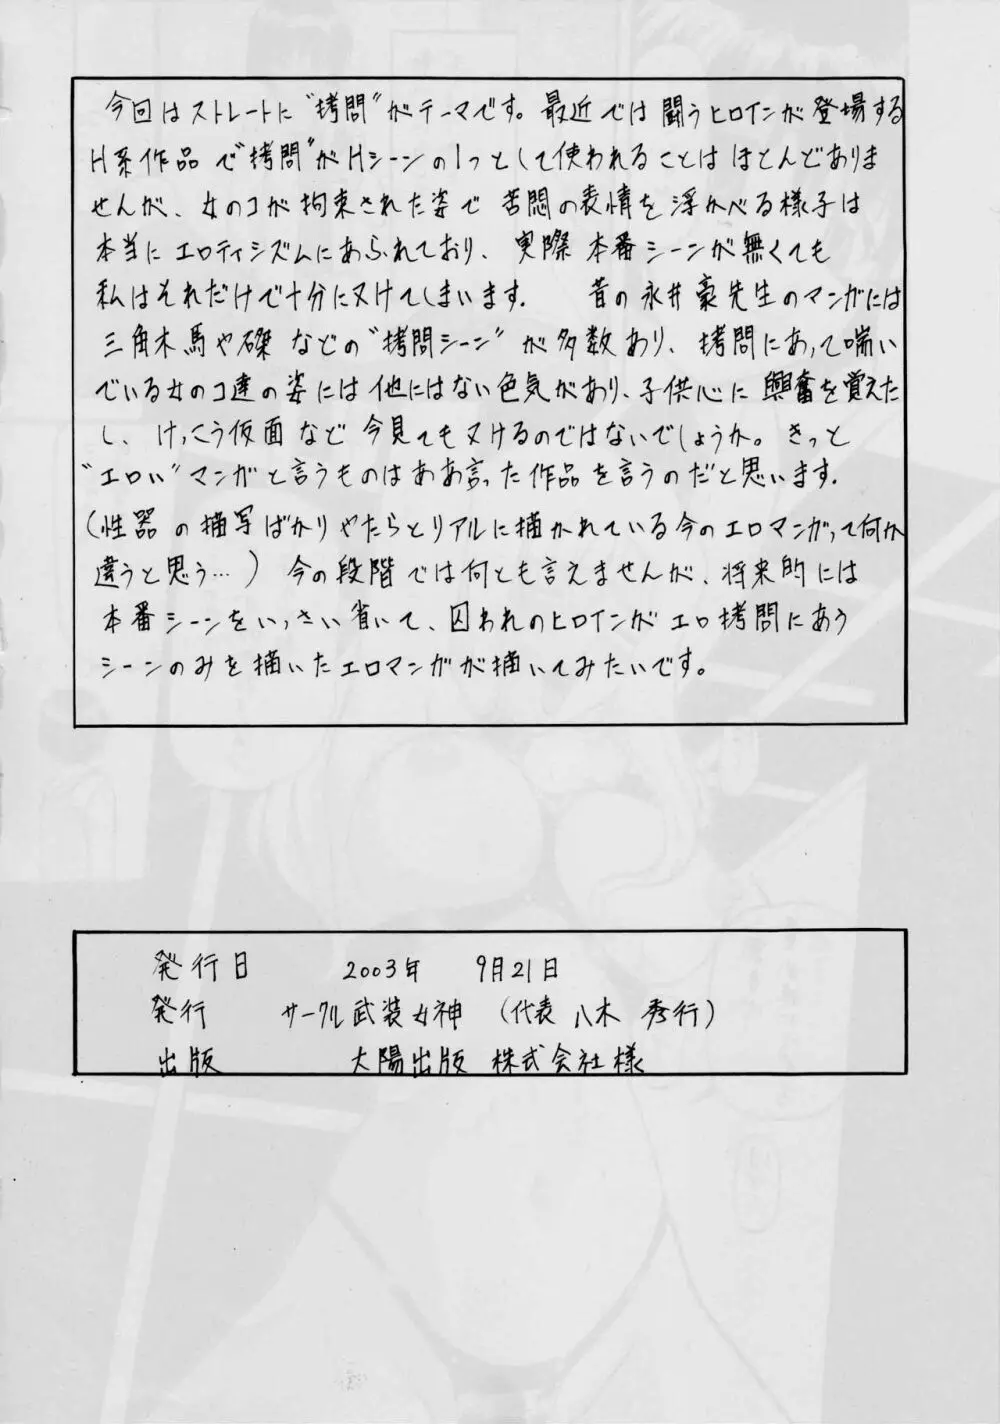 今回はストレートに“拷問”がテーマです。最近では闘うヒロインが登場する
H系作品で“拷問”がHシーンの1つとして使われることはほとんどありま
せんが、女のコが拘束された姿で苦悶の表情を浮かべる様子は
本当にエロティシズムにあふれており、実際本番シーンが無くても
私はそれだけで十分に又けてしまいます. 昔の永井豪先生のマンガには
三角木馬や磔などの“拷問シーン”が多数あり、拷問にあって喘い
でいる女のコ達の姿には他にはない色気があり、子供心に興奮を覚えた
し、けっこう仮面など今見ても又けるのではないでしょうか。きっと
“エロい”マンガと言うものはああ言った作品を言うのだと思います.
(性器の描写ばかりやたらとリアルに描かれている今のエロマンガって何か
違うと思う…)今の段階では何とも言えませんが、将来的には
本番シーンをいっさい省いて、囚われのヒロインがエロ拷問にあう
シーンのみを描いたエロマンガが描いてみたいです。
発行日 2003年 9月21日
発行 サークル武装女神 (代表 八木 秀行)
出版 大陽出版 株式会社様